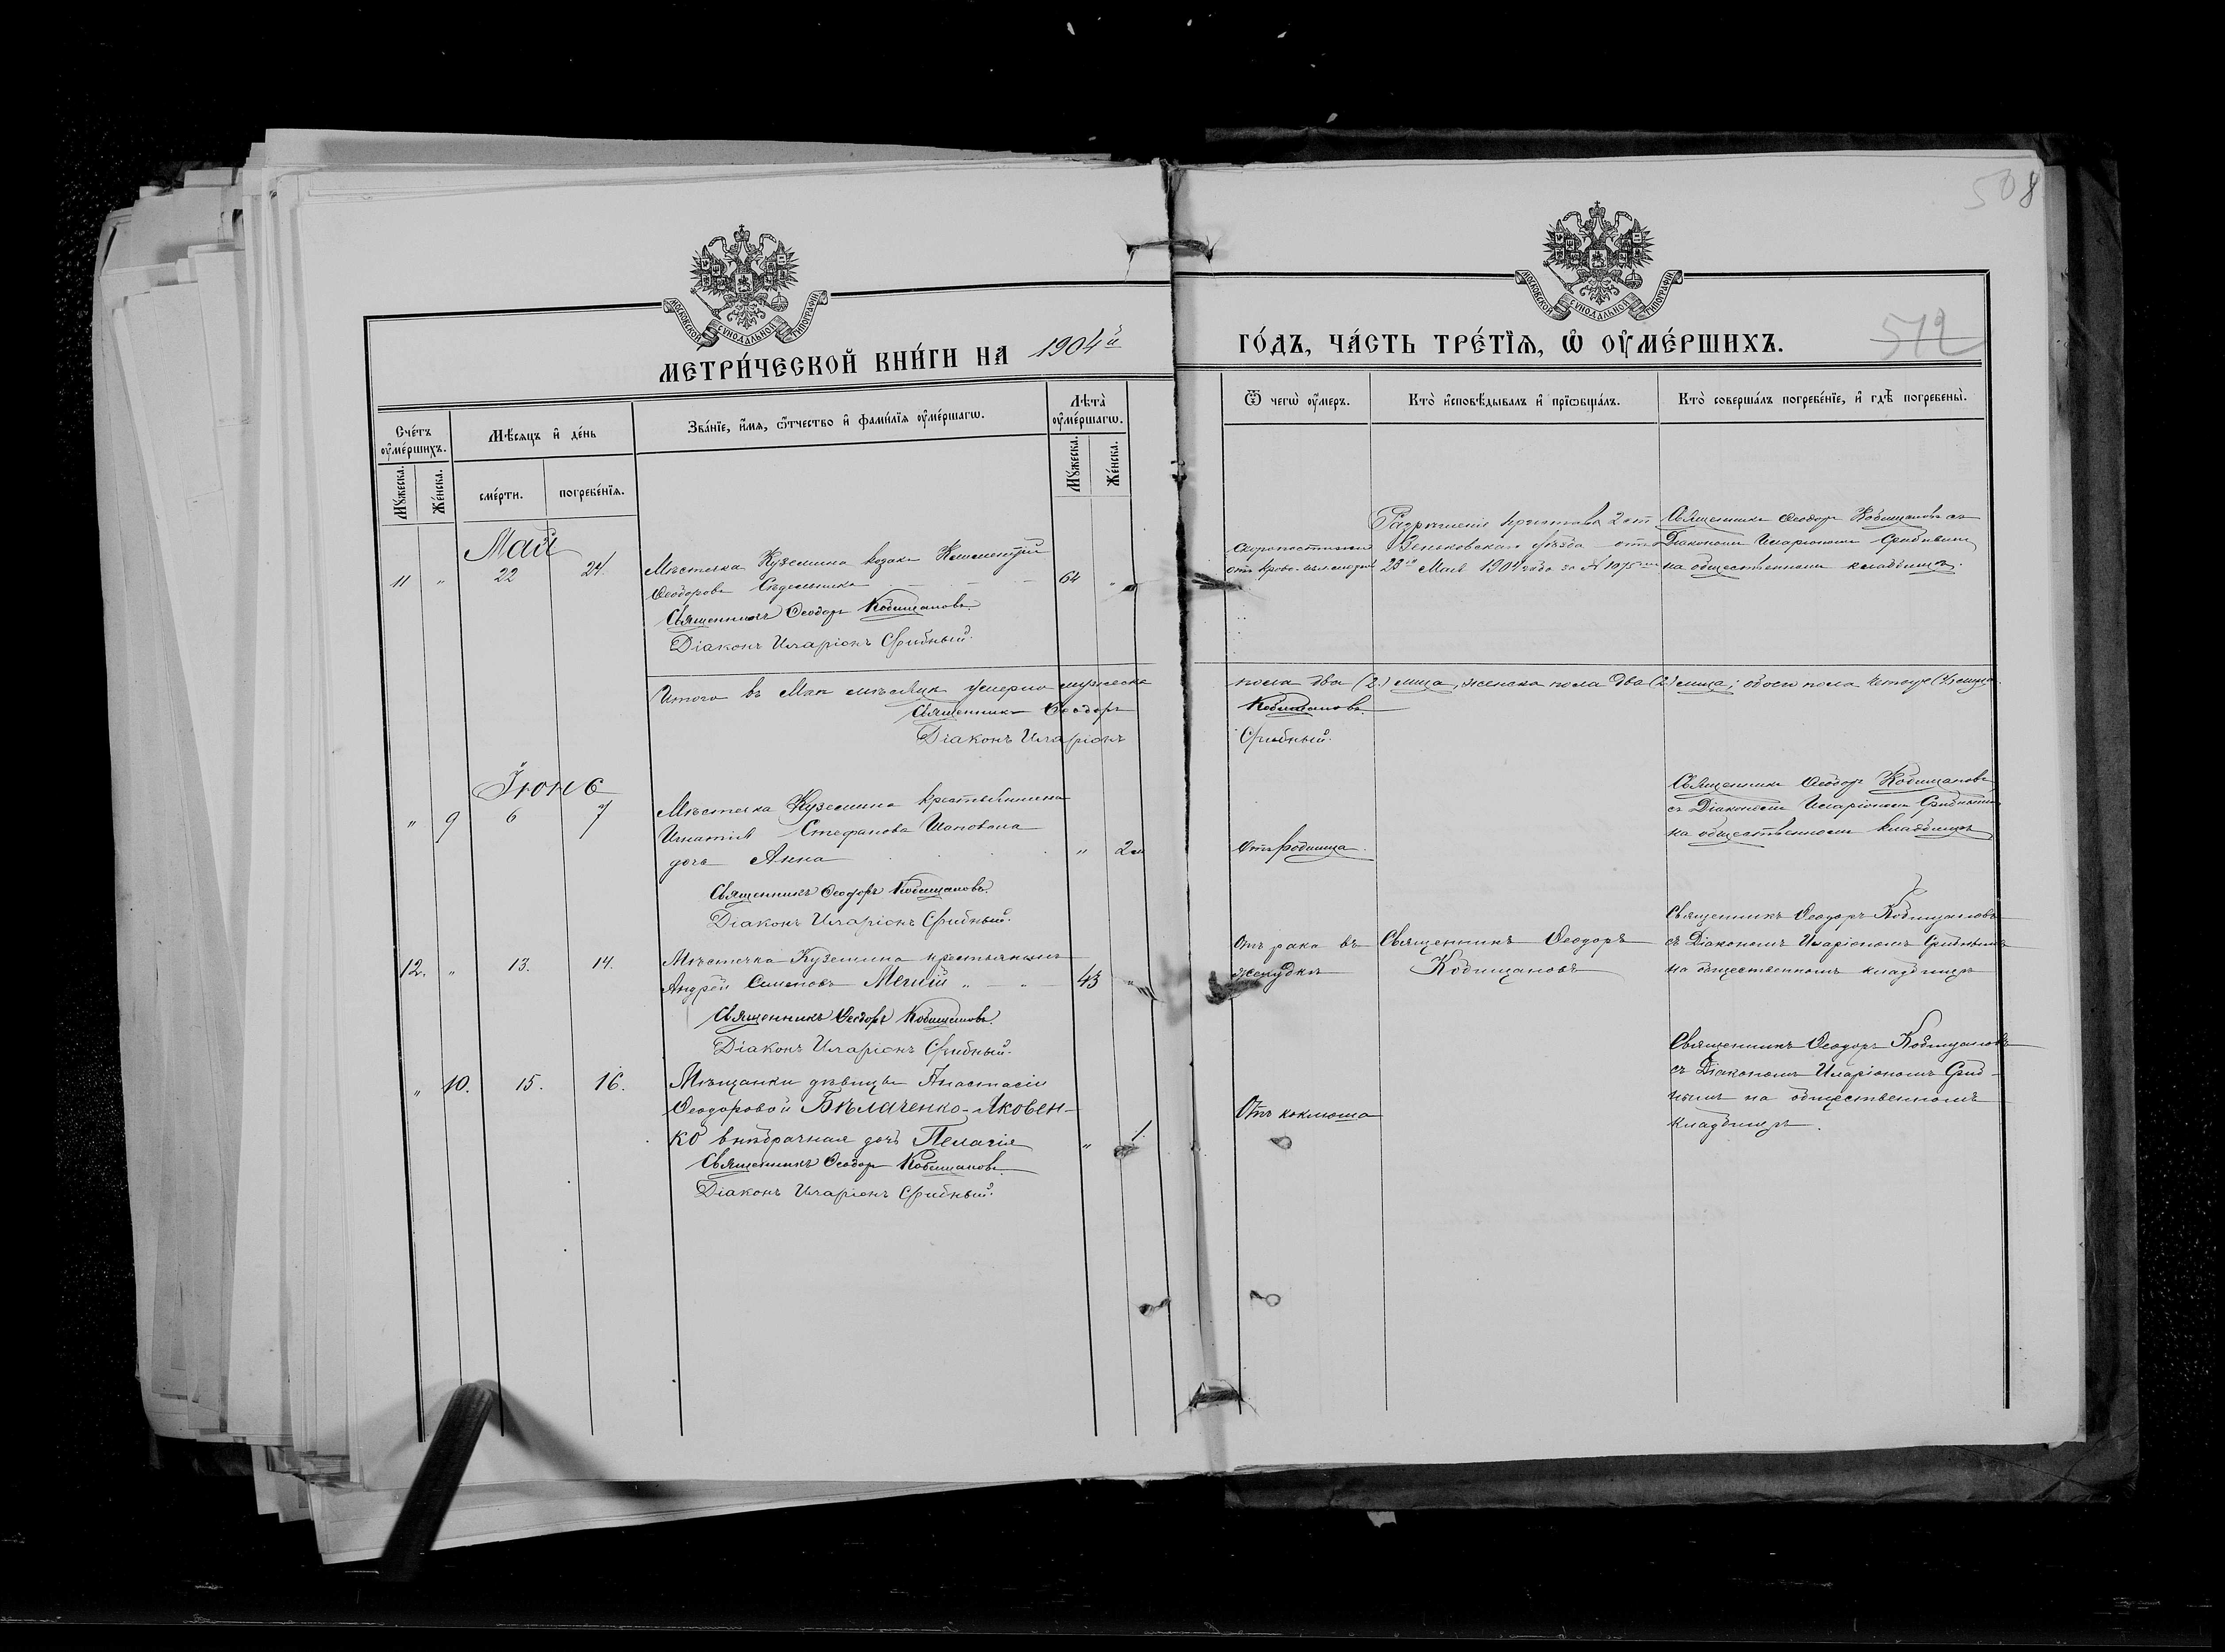 508
МОСКОВСКОЙ СУНОДАЛЬНОЙ ТИПОГРАФІИ
МОСКОВСКОЙ СУНОДАЛЬНОЙ ТИПОГРАФІИ
МЕТРИ́ЧЕСКОЙ КНИ́ГИ НА 1904й
ГО́ДЪ, ЧА́СТЬ ТРЕ́ТЇѦ, Ѽ ОУ҆МЕ́РШИХЪ.
512
Сче́тъ оу҆ме́ршихъ.
Мꙋ́жеска.
Же́нска.
Мѣ́сяцъ и҆ де́нь
сме́рти.
погребе́нїѧ.
Зва́нїе, и҆́мѧ, ѻ҆́тчество и҆ фами́лїѧ оу҆ме́ршагѡ.
Лѣ́та оу҆ме́ршагѡ.
Мꙋ́жеска.
Же́нска.
Ѿ чегѡ̀ оу҆́меръ.
Кто̀ и҆сповѣ́дывалъ и҆ прїѡбща́лъ.
Кто̀ соверша́лъ погребе́нїе, и҆ гдѣ̀ погребены̀.
Май
11 " 22 24.
Мѣстечка Куземина козакъ Климентій
Ѳеодоровъ Сѣдельникъ 64 "
Священникъ Ѳеодоръ Кобищановъ.
Діаконъ Иларіонъ Срибный.
Скоропостижно
Разрѣшеніе пристава 2 ст.
Зеньковскаго уѣзда отъ
23го Мая 1904 года за № 1075
Священникъ Ѳеодоръ Кобищановъ съ
Діакономъ Иларіономъ Срибнымъ
на общественномъ кладбищѣ.
Итого въ Маѣ мѣсяцѣ умерло мужеска пола два (2) лица, женска пола два (2) лица; обоего пола четыре (4) лица.
Священникъ Ѳеодоръ Кобищановъ.
Діаконъ Иларіонъ Срибный.
Іюнь
" 9 6 7
Мѣстечка Куземина крестьянина
Игнатія Стефанова Шаповала
дочь Анна " 2
Священникъ Ѳеодоръ Кобищановъ.
Діаконъ Иларіонъ Срибный.
Отъ родимца.
Священникъ Ѳеодоръ Кобищановъ
съ Діакономъ Иларіономъ Срибнымъ
на общественномъ кладбищѣ
12. " 13. 14.
Мѣстечка Куземина крестьянинъ
Андрей Симеоновъ 43 "
Священникъ Ѳеодоръ Кобищановъ.
Діаконъ Иларіонъ Срибный.
Отъ рака въ
желудкѣ
Священникъ Ѳеодоръ
Кобищановъ
Священникъ Ѳеодоръ Кобищановъ
съ Діакономъ Иларіономъ Срибнымъ
на общественномъ кладбищѣ
" 10. 15. 16.
Мѣщанки дѣвицы Анастасіи
Ѳеодоровой Бѣлаченко-Яковен-
ко внѣбрачная дочь Пелагія " 1.
Священникъ Ѳеодоръ Кобищановъ.
Діаконъ Иларіонъ Срибный.
Отъ коклюша
Священникъ Ѳеодоръ Кобищановъ
съ Діакономъ Иларіономъ Сриб-
нымъ на общественномъ
кладбищѣ.